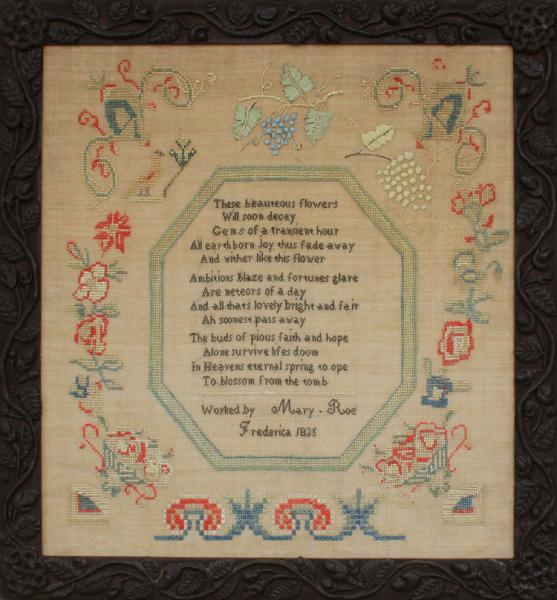 These beauteous flowers
Will soon decay
Gems of a transient hour
All earthborn Joy thus fade away
And wither like this flower
Ambitious blaze and fortunes glare
Are meteors of a day
And all thats lovely bright and fair
Ah soonest pass away
The buds of pious faith and hope
Alone survive lifes doom
In Heavens eternal spring to ope
To blossom from the tomb
Worked by Mary . Roe
Frederica 1835